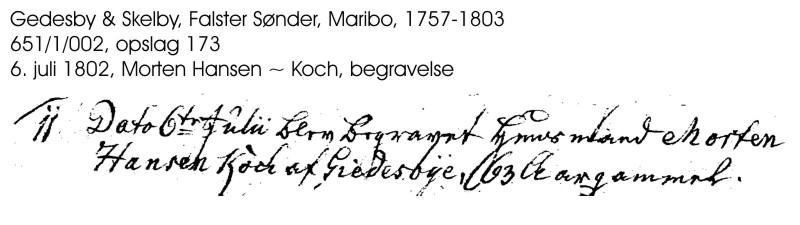 Gedesby & Skelby, Falster Sønder, Maribo, 1757-1803
651/1/002, opslag 173
6. juli 1802, Morten Hansen ~ Koch, begravelse
11 Dato 6te Julii blev begravet Huusmand Morten
Hansen Koch af Giedesbye, 63 Aar gammel.